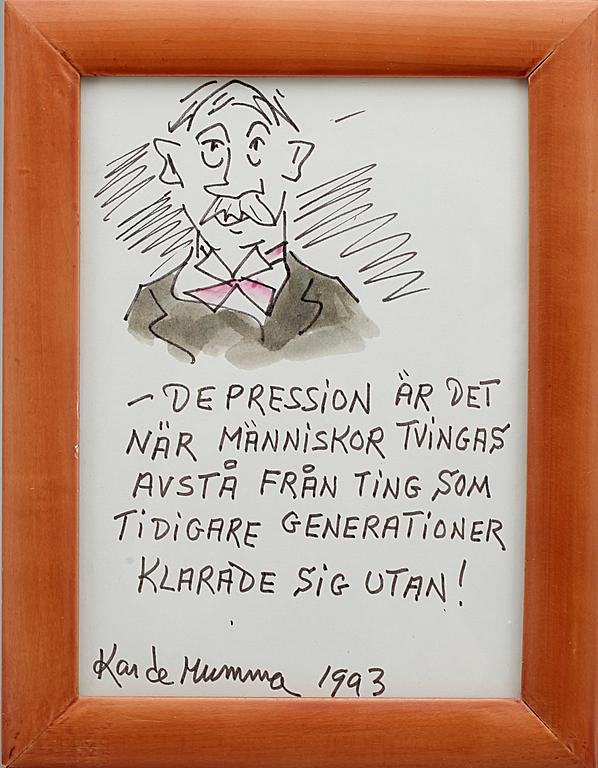 — DEPRESSION ÄR DET
NÄR MÄNNISKOR TVINGAS
AVSTÅ FRÅN TING SOM
TIDIGARE GENERATIONER
KLARADE SIG UTAN!
Kar de Mumma 1993